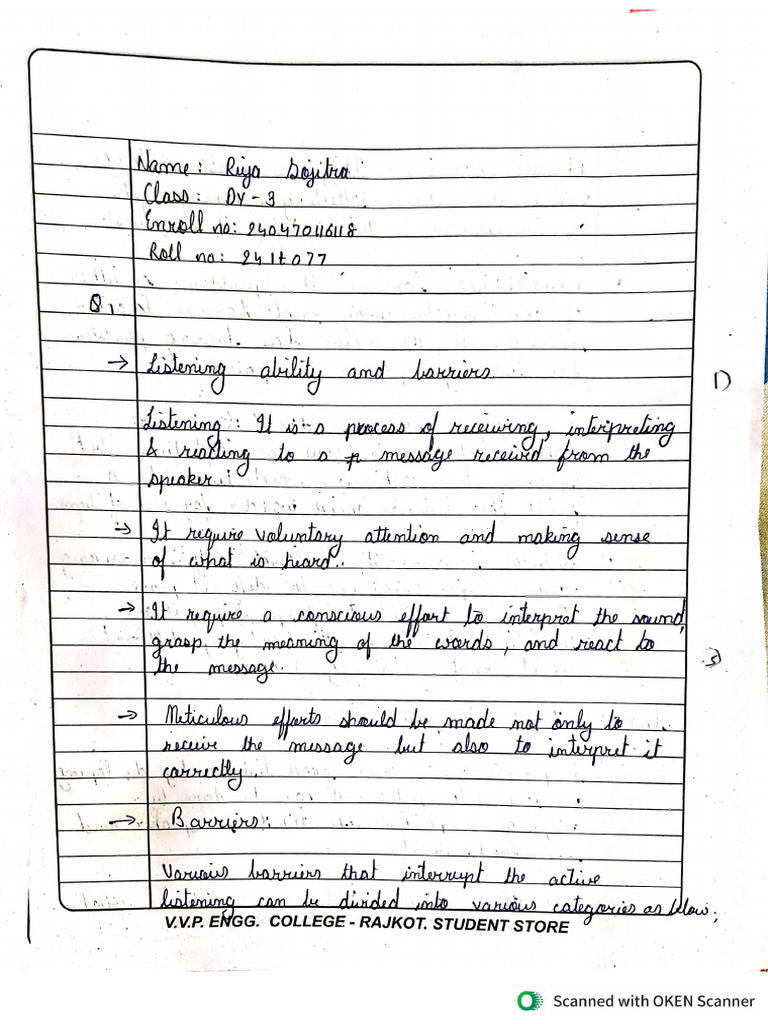 Name: Riya Sojitra
Class: DY-3
Enroll no: 24047016118
Roll no: 24It077
Q.1
→ Listening ability and barriers.
1)
Listening: It is a process of receiving, interpreting
& reacting to a message received from the
speaker.
→ It require voluntary attention and making sense
of what is heard..
→ It require a conscious effort to interpret the sound,
grasp the meaning of the words, and react to
the message.
3)
→ Meticulous efforts should be made not only to
receive the message but also to interpret it
correctly.
→ Barriers:
Various barriers that interrupt the active
listening can be divided into various categories as blow;
V.V.P. ENGG. COLLEGE - RAJKOT. STUDENT STORE
Scanned with OKEN Scanner